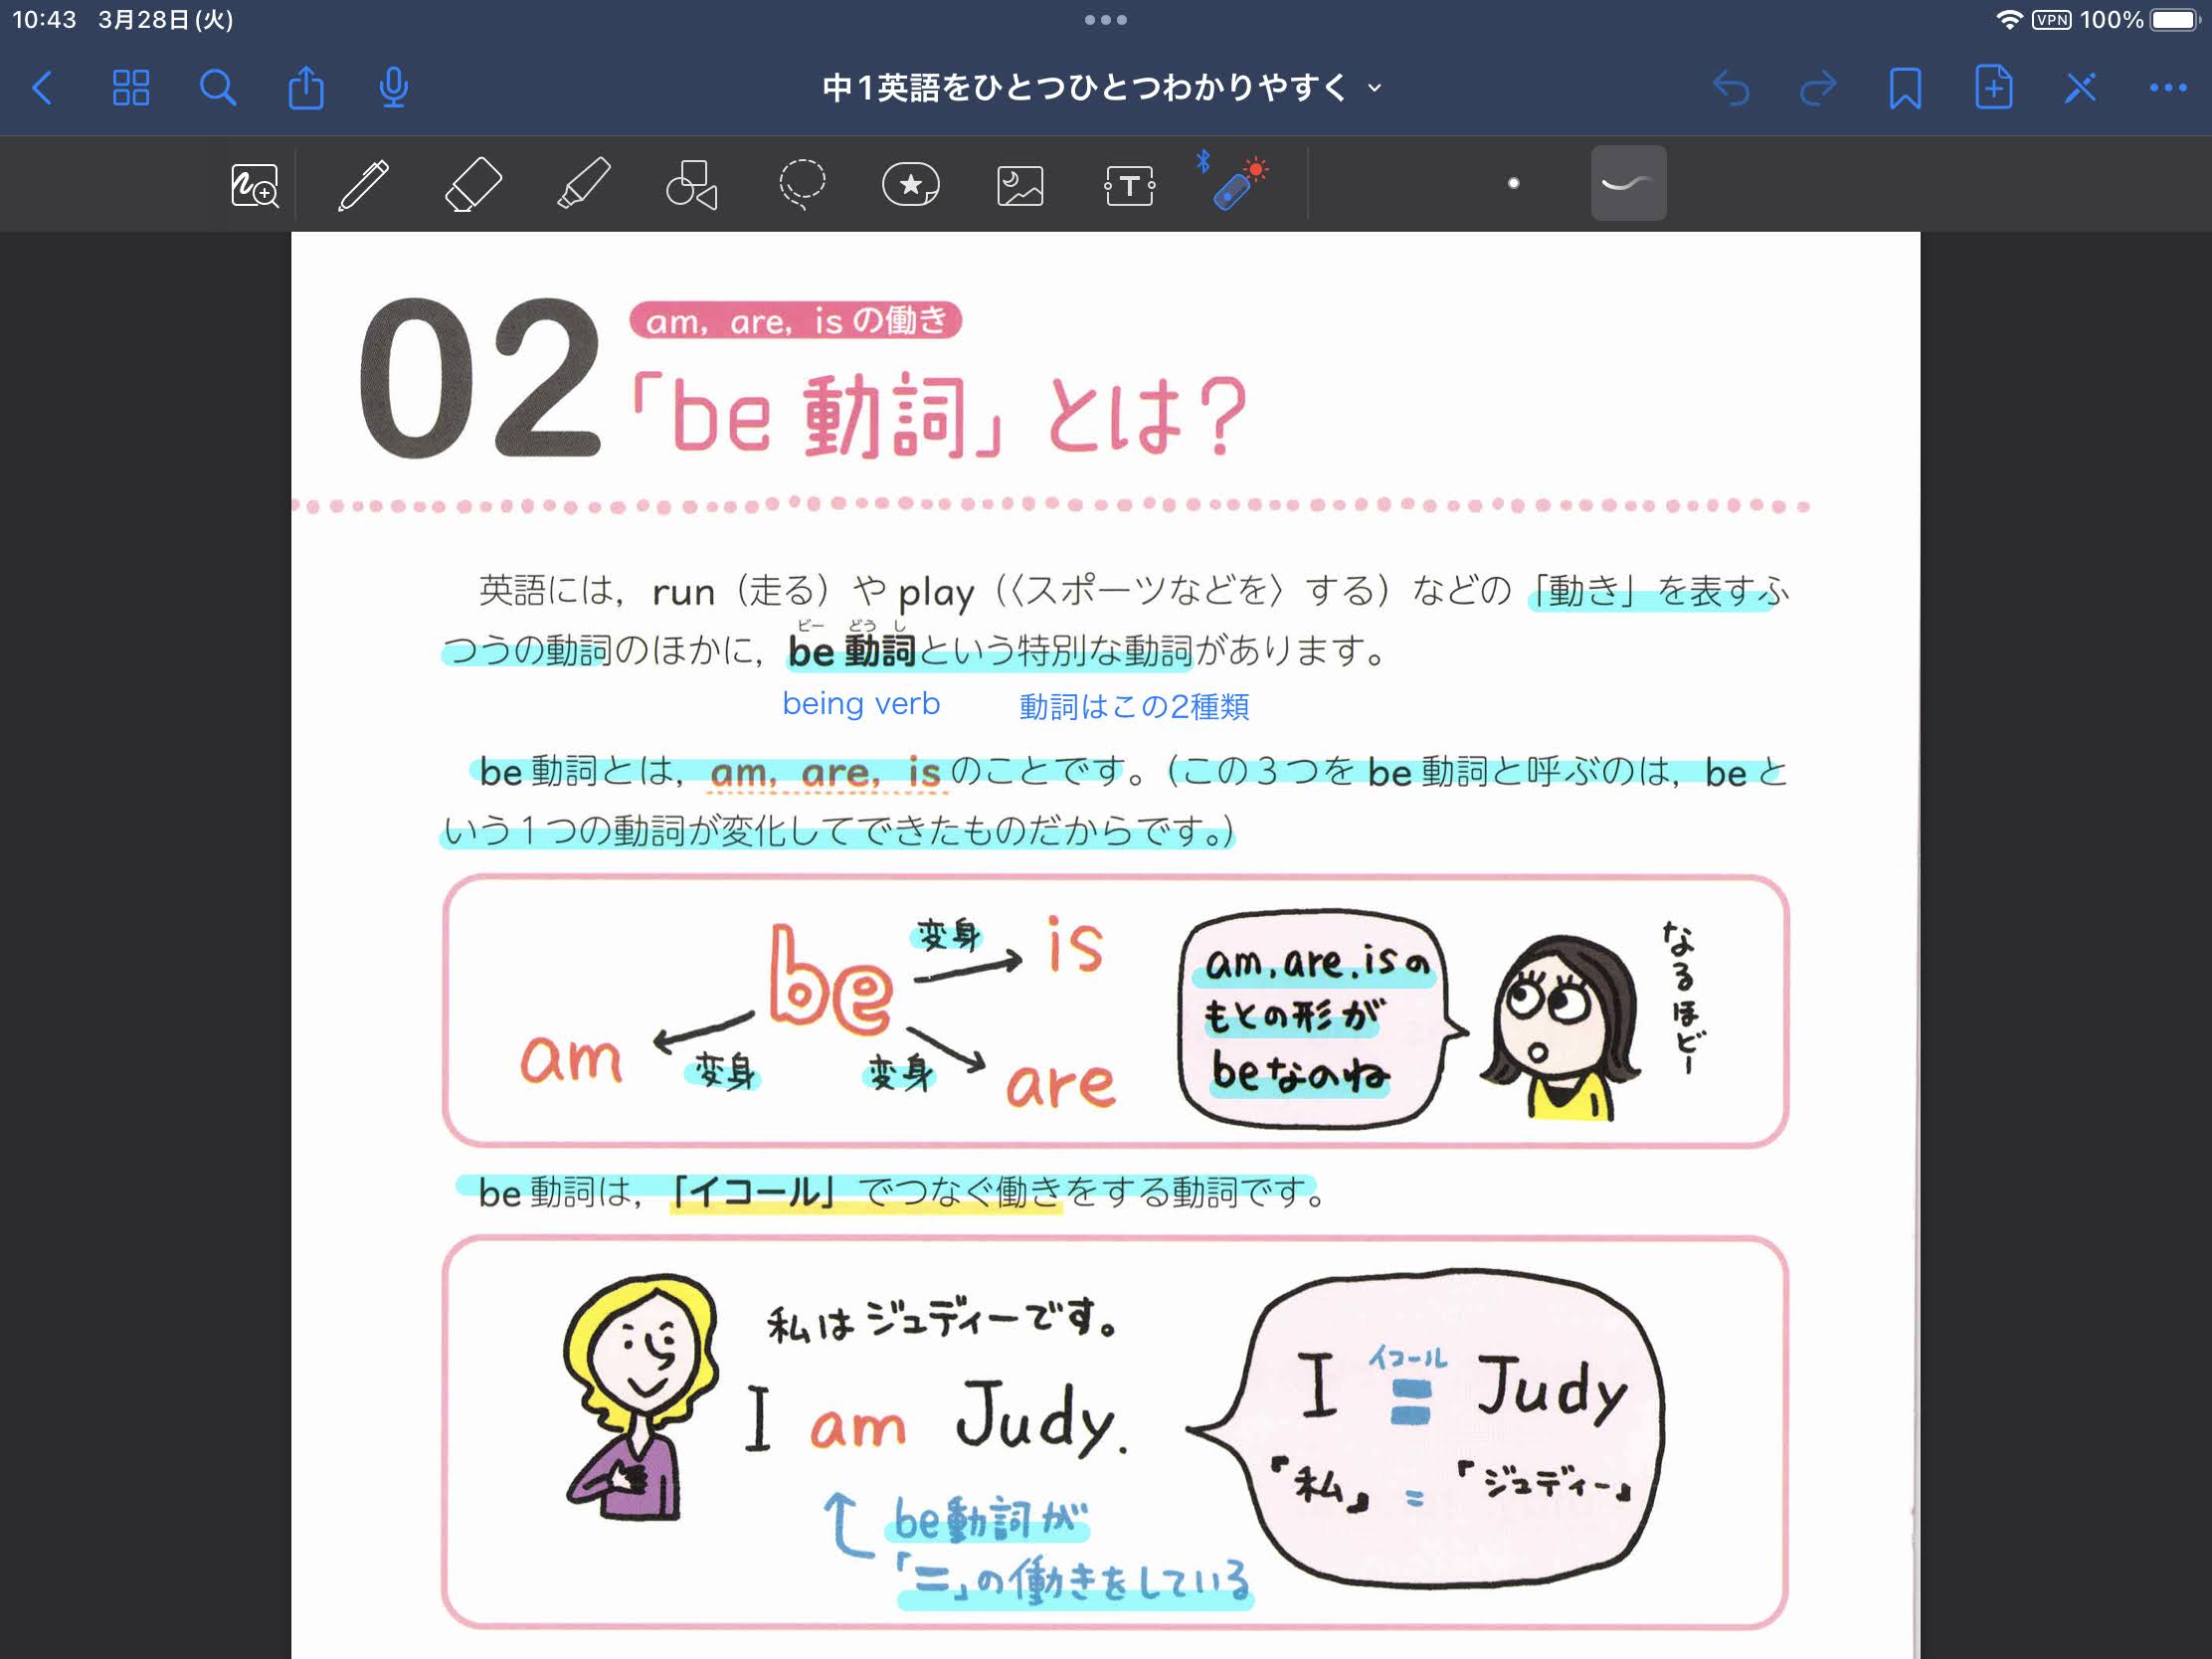 10:43 3月28日(火)
VPN 100%
中1英語をひとつひとつわかりやすく
T
02
am, are, is の働き
「be 動詞」とは？
英語には, run（走る）や play（〈スポーツなどを〉する）などの「動き」を表すふ
ビー どう し
つうの動詞のほかに, be 動詞という特別な動詞があります。
being verb 動詞はこの2種類
be 動詞とは, am, are, is のことです。（この３つを be 動詞と呼ぶのは, be と
いう１つの動詞が変化してできたものだからです。）
be
変身
is
am
変身
変身
are
am, are, isの
もとの形が
beなのね
なるほビー
be 動詞は, 「イコール」でつなぐ働きをする動詞です。
私はジュディーです。
I am Judy.
be動詞が
「=」の働きをしている
イコール
I = Judy
「私」 = 「ジュディー」